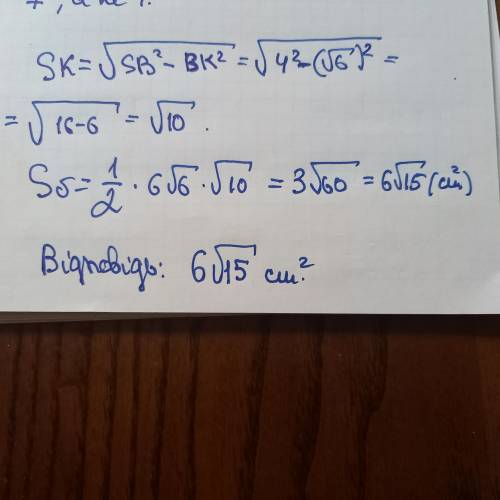 SK = √(SB² − BK²) = √(4² − (√6)²) =
= √(16-6) = √10.
Sб = 1/2 · 6√6 · √10 = 3√60 = 6√15 (см²)
Відповідь: 6√15 см².